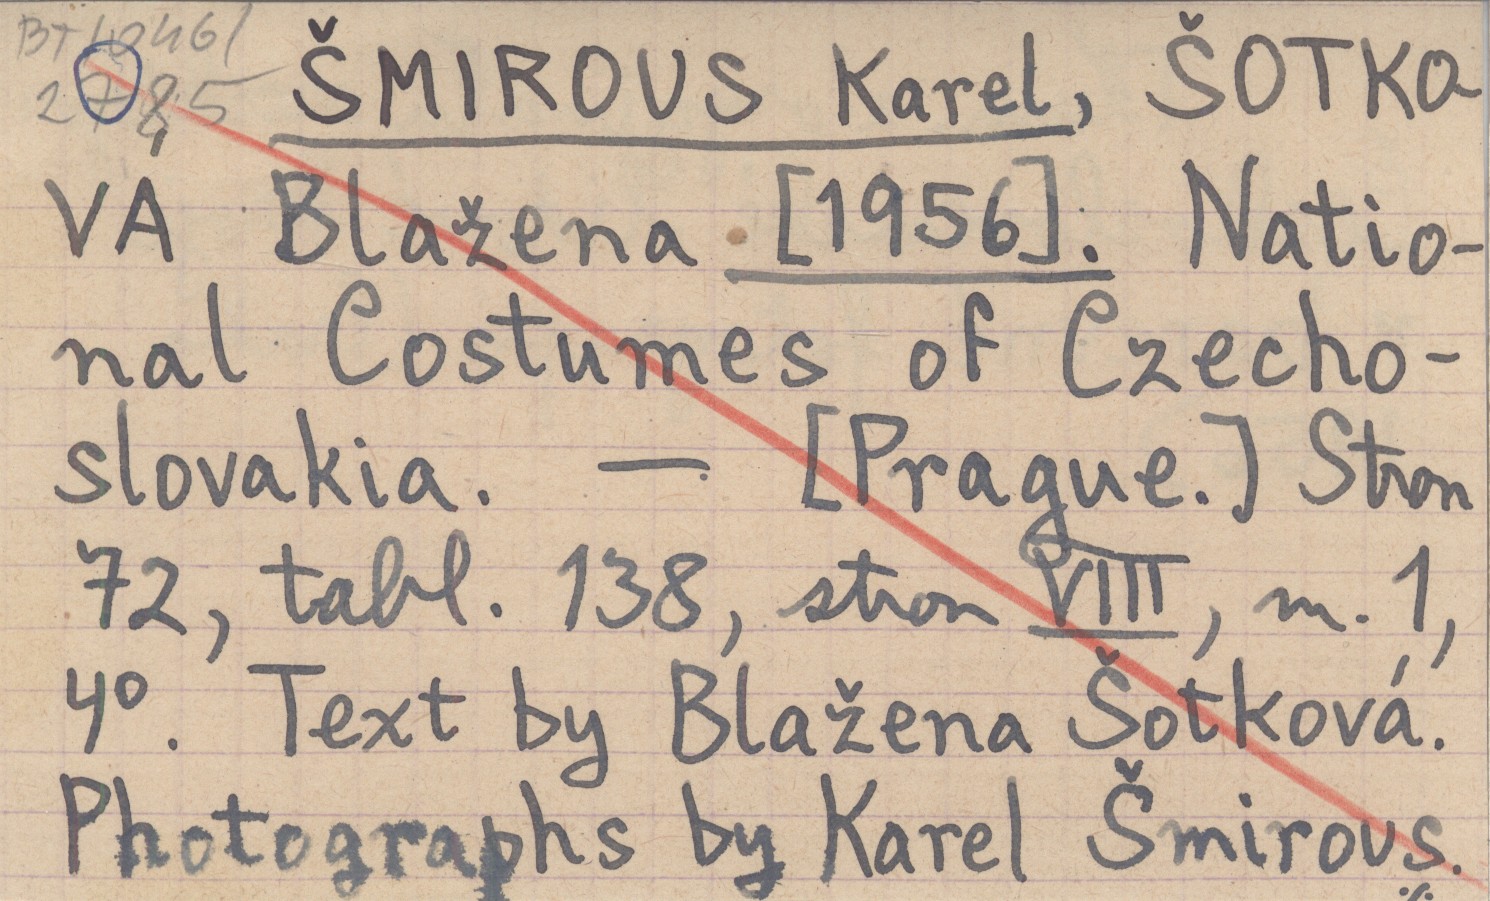 2785
ŠMIROUS Karel, ŠOTKO
VÁ Blažena [1956]. Natio-
nal Costumes of Czecho-
slovakia. — [Prague.] Stron
72, tabl. 138, stron VIII, m. 1,
4°. Text by Blažena Šotková.
Photographs by Karel Šmirous.
·/.